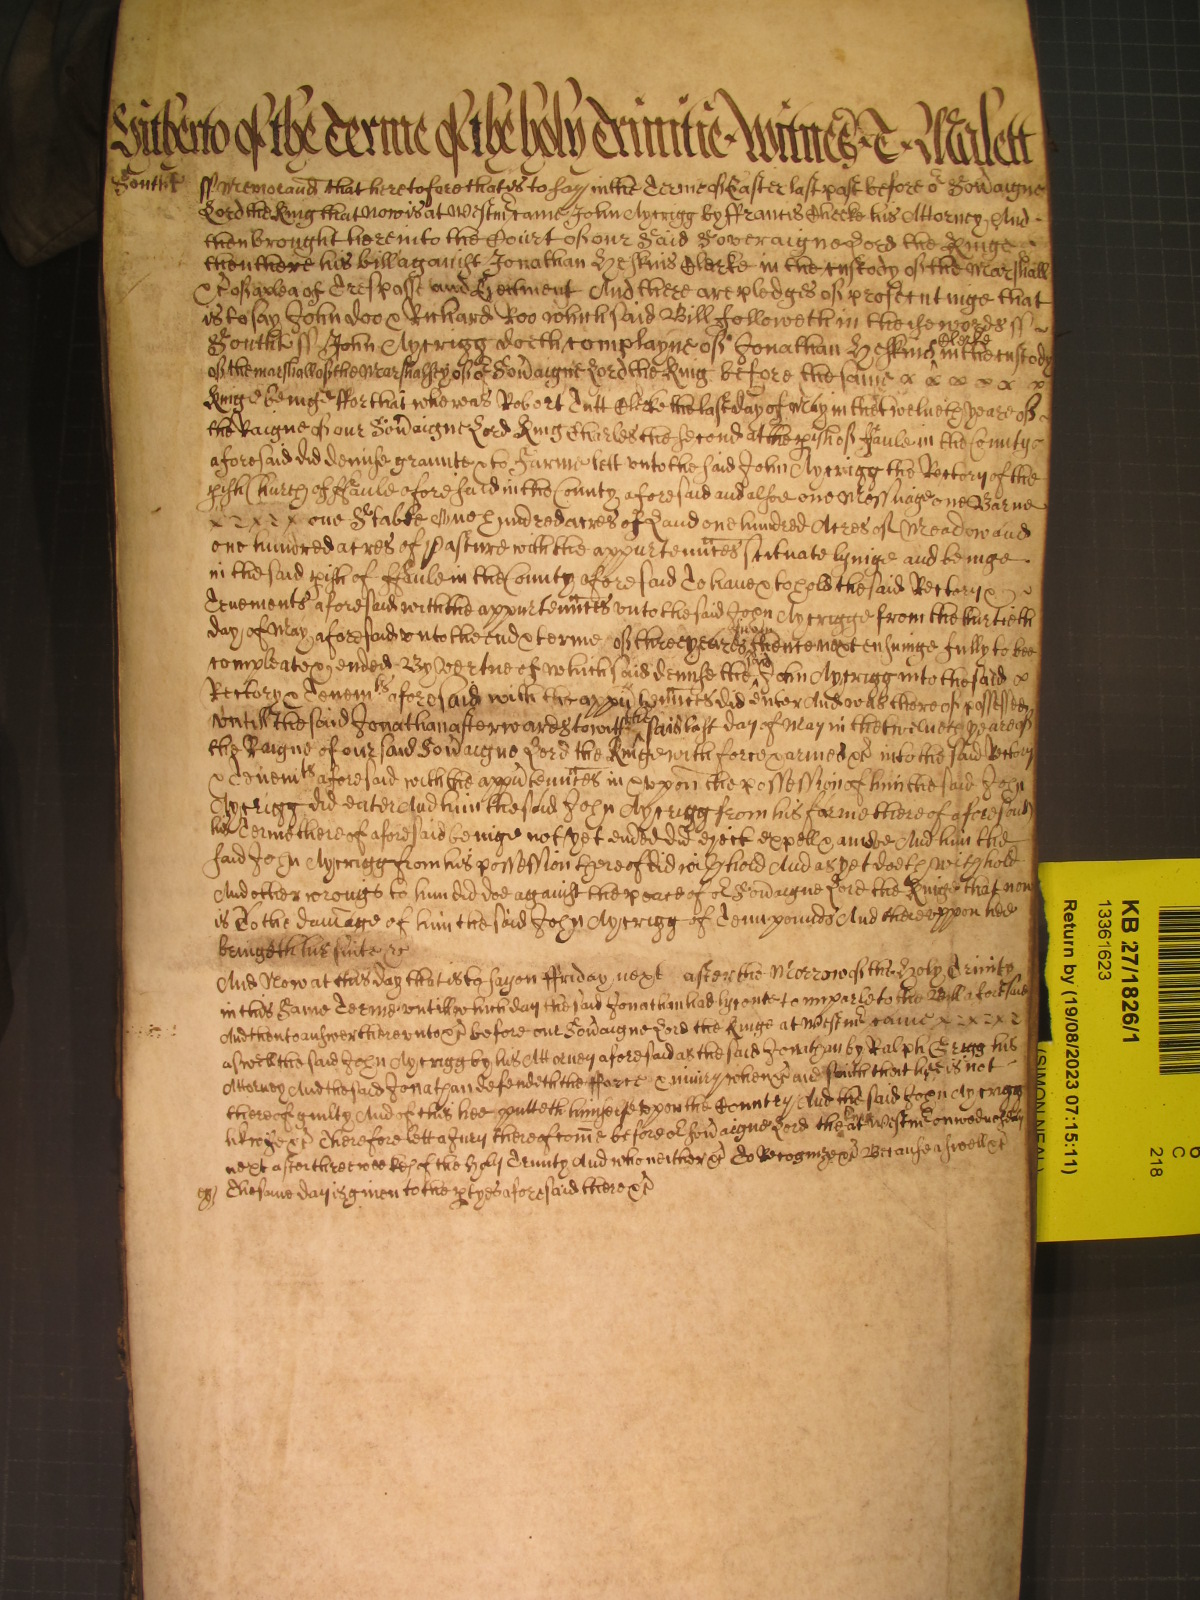 Hitherto of the Terme of the holy Trinitie. Witnes. T. Malett
Southt ss Memorand that heretofore that is to say in the Terme of Easter last past before or Sovaigne
Lord the King that now is at Westmr came John Aycrigg by ffrancis Cheeke his Attorney. And
then brought here into the Court of our Said Soveraigne Lord the Kinge
then there his bill against Jonathan Heskins Clerke in the custody of the Marshall
&c of a plea of Trespasse and Ejectment And there are pledges of prosecutinge that
is to say John Doo & Richard Roo which said Bill followeth in these words ss
Southt ss John Aycrigg doth complayne of Jonathan Heskins Clerke in the custody
of the marshall of the Marshalsey of or Sovaigne Lord the King before the same x x x x x x
Kinge beinge ffor that whereas Robert Tutt Clerke the last day of May in the twelueth yeare of
the Raigne of our Sovaigne Lord King Charles the Second at the pish of ffaule in the County
aforesaid did demise graunte & to Farme lett unto the said John Aycrigg the Rectory of the
pish Church of ffaule aforesaid in the County aforesaid and alsoe one Messuage one Barne
x x x x x one Stable One hundred acres of Land one hundred Acres of Meadow and
one hundred acres of Pasture with the appurtennces scituate lyinge and beinge
in the said pish of ffaule in the County aforesaid To haue & to hold the said Rectory &
Tenements aforesaid with the appurtennces unto the said John Aycrigge from the thirtieth
day of May aforesaid unto the end & terme of three yeares thence next ensuinge fully to bee
compleate & ended By Vertue of which said demise the said John Aycrigg into the said x
Rectory & Tenemts aforesaid with the appurtennces did enter And was thereof possessed
untill the said Jonathan afterwards towitt the said last day of May in the twelueth yeare of
the Raigne of our said Sovaigne Lord the Kinge with force & armes &c into the said Rectory
& Tenemts aforesaid with the appurtennces in & upon the possession of him the said John
Aycrigg did enter And him the said John Aycrigg from his farme thereof aforesaid
his Terme thereof aforesaid beinge not yet ended did eject expell & amove And him the
said John Aycrigg from his possession thereof did withhold And as yet doeth withhold
And other wrongs to him did doe against the peace of or Sovaigne Lord the Kinge that now
is To the damage of him the said John Aycrigg of Tenn pounds And thereuppon hee
bringeth his suite &c
And Now at this day that is to say on ffriday next after the Morrow of the Holy Trinity
in this Same Terme untill which day the said Jonathan had lycence to imparle to the Bill aforesaid
And then to answer thereunto &c before our Sovaigne Lord the Kinge at Westmr came x x x x x
aswell the said John Aycrigg by his Attorney aforesaid as the said Jonathan by Ralph Grigg his
Attorney And the said Jonathan defendeth the fforce & iniury when &c and saith that hee is not
thereof guilty And of this hee putteth himselfe upon the Country And the said John Aycrigg
likewise &c Therefore lett a Jury thereof come before or Sovaigne Lord the Kinge at Westmr on wednesday
next after three weekes of the Holy Trinity And who neither &c To Recognize &c Because aswell &c
The same day is given to the ptyes aforesaid there &c
KB 27/1826/1
13361623
Return by (19/08/2023 07:15:11)
(SIMON NEAL)
C
218